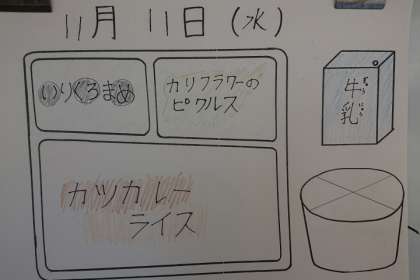 11月11日(水)
いりくろまめ
カリフラワーの
ピクルス
牛乳
ぎゅうにゅう
カツカレー
ライス